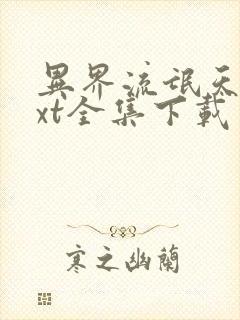 異界流氓天
xt全集下載
寒之幽蘭